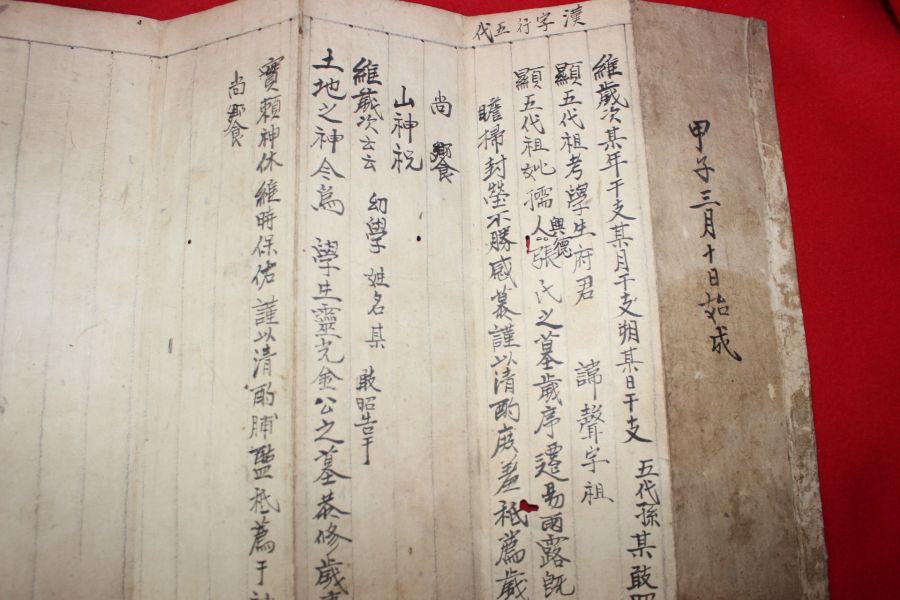 甲子三月十日始成
漢字行五代
維歲次某年干支某月干支朔某日干支 五代孫某敢昭
顯五代祖考學生府君 諱聲字祖
顯五代祖妣孺人興德張氏之墓歲序遷易雨露旣
瞻掃封塋不勝感慕謹以清酌庶羞祗薦歲
尚饗
山神祝
維歲次云云 幼學 姓名某 敢昭告于
土地之神今爲 學生靈光金公之墓恭修歲事
寶賴神休維時保佑謹以清酌脯醢祗薦于神
尚饗